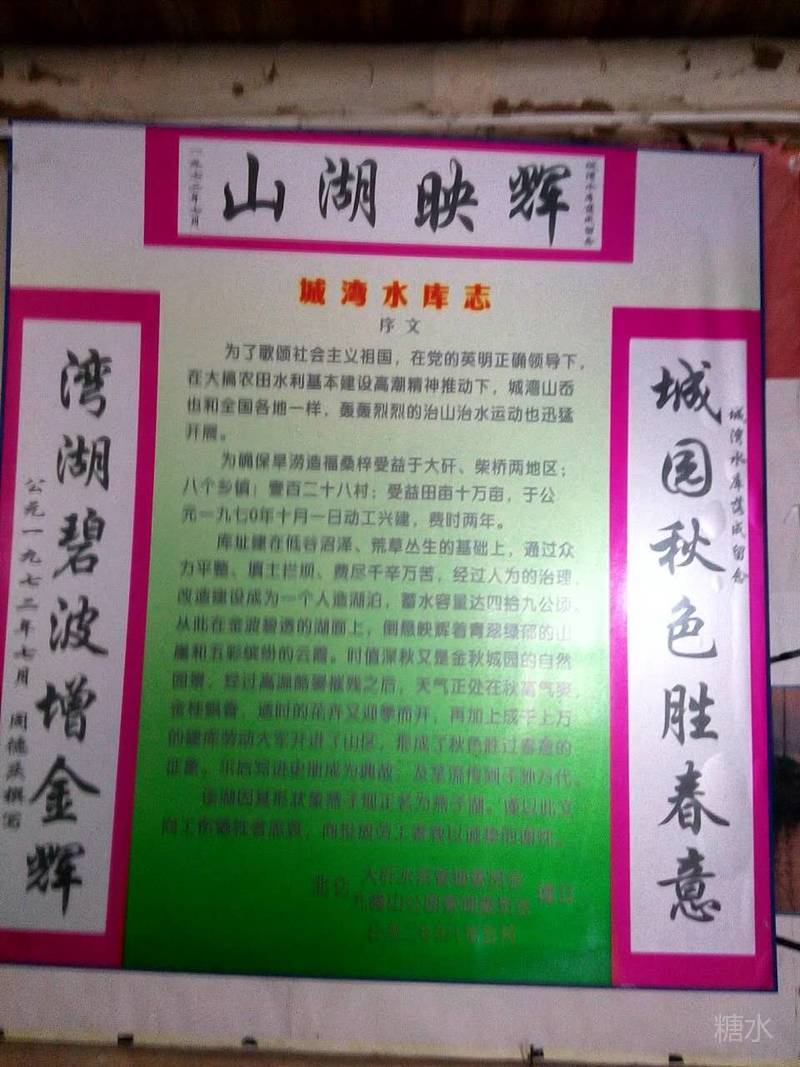 山湖映辉
城湾水库落成留念
一九七二年七月
城湾水库志
序文
为了歌颂社会主义祖国，在党的英明正确领导下，
在大搞农田水利基本建设高潮精神推动下，城湾山岙
也和全国各地一样，轰轰烈烈的治山治水运动也迅猛
开展。
为确保旱涝造福桑梓受益于大矸、柴桥两地区；
八个乡镇；壹百二十八村；受益田亩十万亩，于公
元一九七0年十月一日动工兴建，费时两年。
库址建在低谷沼泽、荒草丛生的基础上，通过众
力平整、填土拦坝、费尽千辛万苦，经过人为的治理，
改造建设成为一个人造湖泊，蓄水容量达四拾九公顷。
从此在金波碧透的湖面上，倒悬映辉着青翠绿郁的山
崖和五彩缤纷的云霞。时值深秋又是金秋城园的自然
园景，经过高温酷暑摧残之后，天气正处在秋高气爽，
金桂飘香，适时的花卉又迎季而开，再加上成千上万
的建库劳动大军开进了山区，形成了秋色胜过春意的
景象，
写进史册成为典故，及至流传到子孙万代。
该湖因其形状象燕子则正名为燕子湖。谨以此文
向工伤牺牲者志哀，向投放劳工者致以诚挚的谢忱。
北仑
城园秋色胜春意
城湾水库落成留念
湾湖碧波增金辉
公元一九七二年七月
糖水